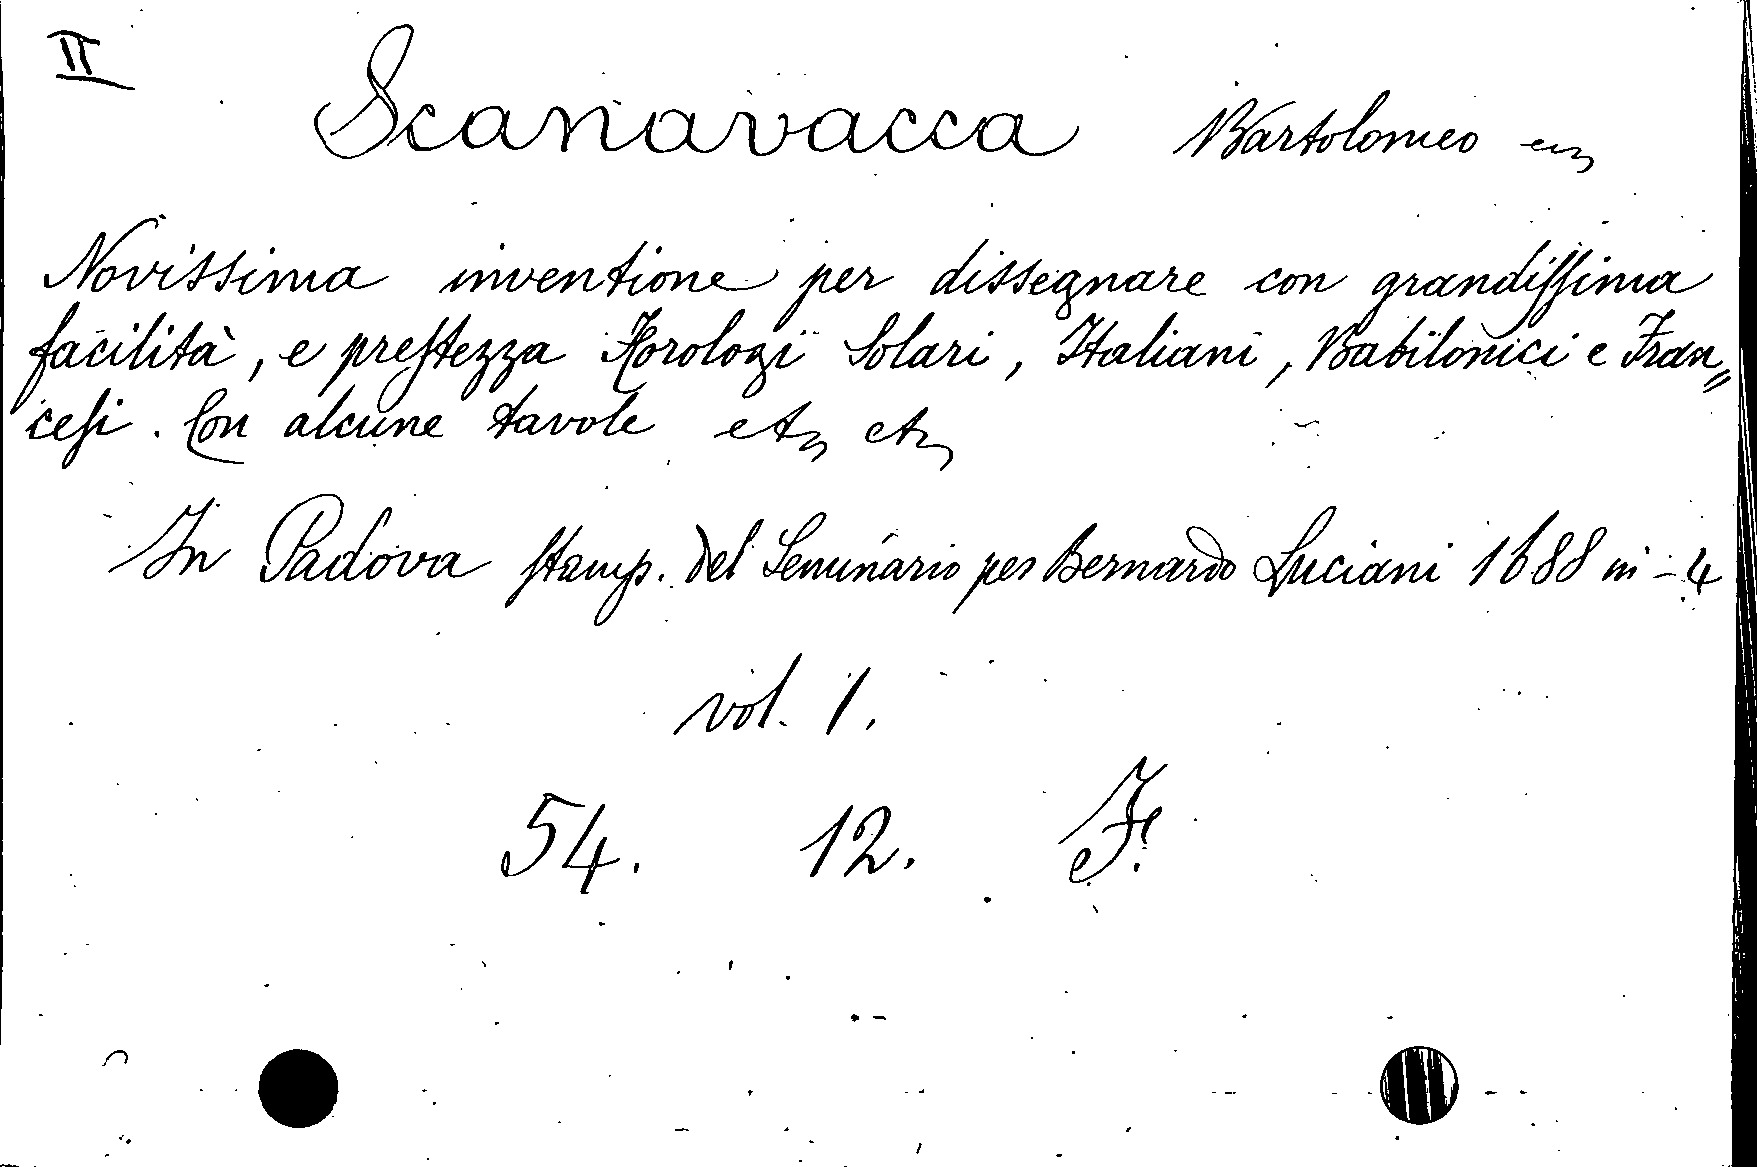 II
Scanavacca Bartolomeo
Novissima inventione per dissegnare con grandiſsima
facilità, e preſtezza Horologi Solari, Italiani, Babilonici e Fran„
ceſi. Con alcune tavole etc etc
In Padova ſtamp. del Seminario per Bernardo Luciani 1688 in-4
vol. 1.
54. 12. F.